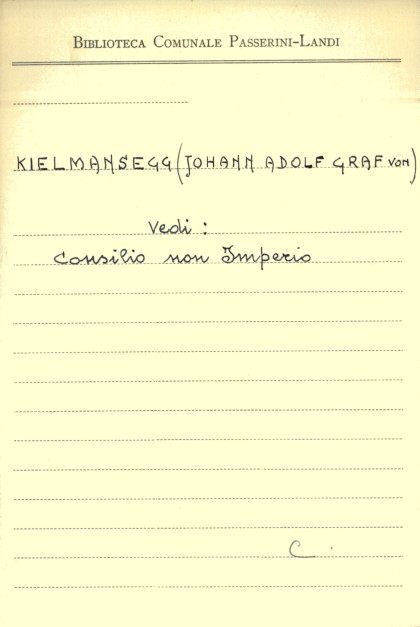 BIBLIOTECA COMUNALE PASSERINI-LANDI
KIELMANSEGG (JOHANN ADOLF GRAF von)
Vedi :
Consilio non Imperio
C.